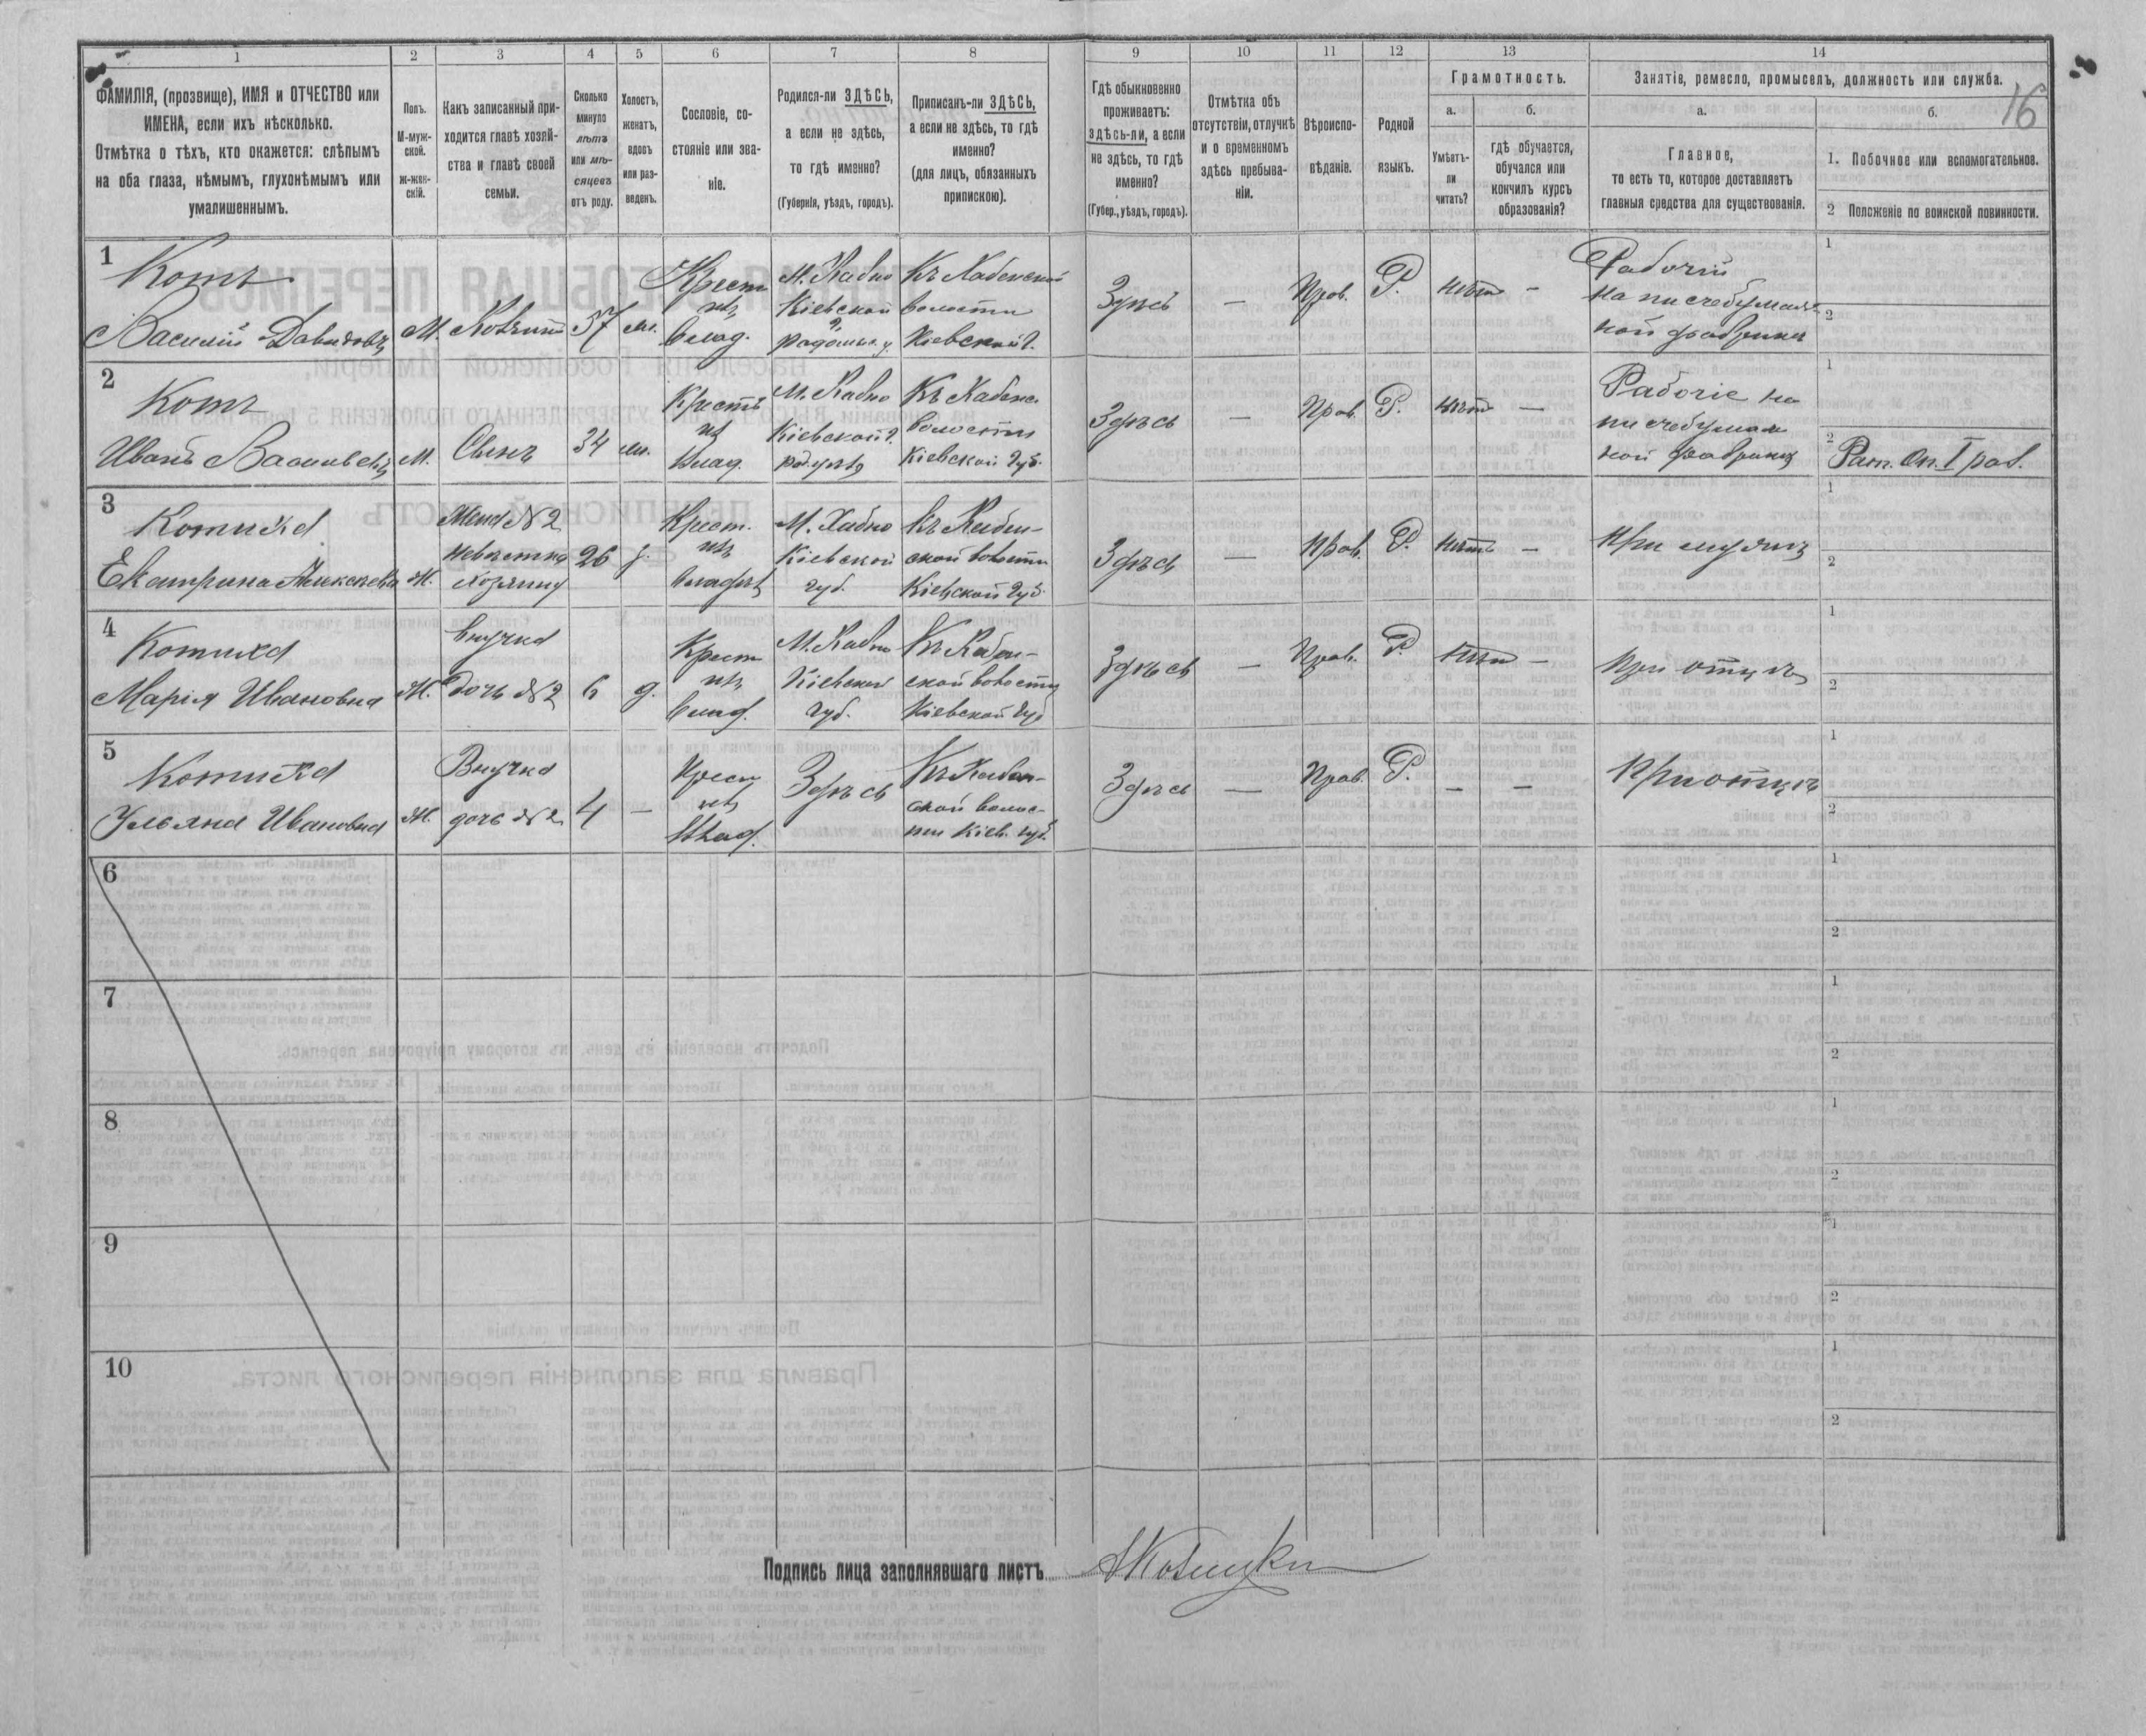 1 2 3 4 5 6 7 8 9 10 11 12 13 14
16
ФАМИЛІЯ, (прозвище), ИМЯ и ОТЧЕСТВО или
ИМЕНА, если ихъ нѣсколько.
Отмѣтка о тѣхъ, кто окажется: слѣпымъ
на оба глаза, нѣмымъ, глухонѣмымъ или
умалишеннымъ.
Полъ.
М-муж-
ской.
ж-жен-
скій.
Какъ записанный при-
ходится главѣ хозяй-
ства и главѣ своей
семьи.
Сколько
минуло
лѣтъ
или мѣ-
сяцевъ
отъ роду.
Холостъ,
женатъ,
вдовъ
или раз-
веденъ.
Сословіе, со-
стояніе или зва-
ніе.
Родился-ли ЗДѢСЬ,
а если не здѣсь,
то гдѣ именно?
(Губернія, уѣздъ, городъ).
Приписанъ-ли ЗДѢСЬ,
а если не здѣсь, то гдѣ
именно?
(для лицъ, обязанныхъ
припискою).
Гдѣ обыкновенно
проживаетъ:
здѣсь-ли, а если
не здѣсь, то гдѣ
именно?
(Губер., уѣздъ, городъ).
Отмѣтка объ
отсутствіи, отлучкѣ
и о временномъ
здѣсь пребыва-
ніи.
Вѣроиспо-
вѣданіе.
Родной
языкъ.
Грамотность.
а.
Умѣетъ-
ли
читать?
б.
гдѣ обучается,
обучался или
кончилъ курсъ
образованія?
Занятіе, ремесло, промыселъ, должность или служба.
а.
Главное,
то есть то, которое доставляетъ
главныя средства для существованія.
б.
1. Побочное или вспомогательное.
2 Положеніе по воинской повинности.
1
Котъ
Василій Давидовъ
М.
Хозяинъ
57
Крест
изъ
Влад.
М. Хабно
Кіевской
г.
радомы. у.
Къ Хабенской
волости
Кіевской г.
Здѣсь
—
Прав.
Р.
нѣтъ
—
Рабочій
на писчебумаж
ной фабрики
1
2
2
Котъ
Иванъ Васильевъ
М.
Сынъ
34
Крестъ
изъ
Влад.
М. Хабно
Кіевской г.
Къ Хабенс.
волости
Кіевской Губ.
Здѣсь
—
Прав.
Р.
нѣтъ
—
Рабочіе на
писчебумаж
ной фабрики
1
2
Рат. Оп. I раз.
3
Котиха
Екатрина Алексѣева
Ж.
Жена №2
невѣстка
хозяину
26
Крест.
изъ
М. Хабно
Кіевской
губ.
Къ Хабен-
ской волости
Кіевской Губ.
Здѣсь
—
Прав.
Р.
нѣтъ
—
При мужѣ
1
2
4
Котиха
Марія Ивановна
Ж.
внучка
Дочь №2
6
д.
Крест
изъ
Влад.
М. Хабно
Кіевской
губ.
Къ Хабен-
ской волости
Кіевской Губ
Здѣсь
—
Прав.
Р.
нѣтъ
—
при отцѣ
1
2
5
Котиха
Ульяна Ивановна
Ж.
Внучка
дочь №2
4
—
Крест
изъ
Влад.
Здѣсь
Къ Хабен-
ской волос-
ти Кіев. губ.
Здѣсь
—
Прав.
Р.
—
—
При отцѣ
1
2
6
1
2
7
1
2
8
1
2
9
1
2
10
1
2
Подпись лица заполнявшаго листъ